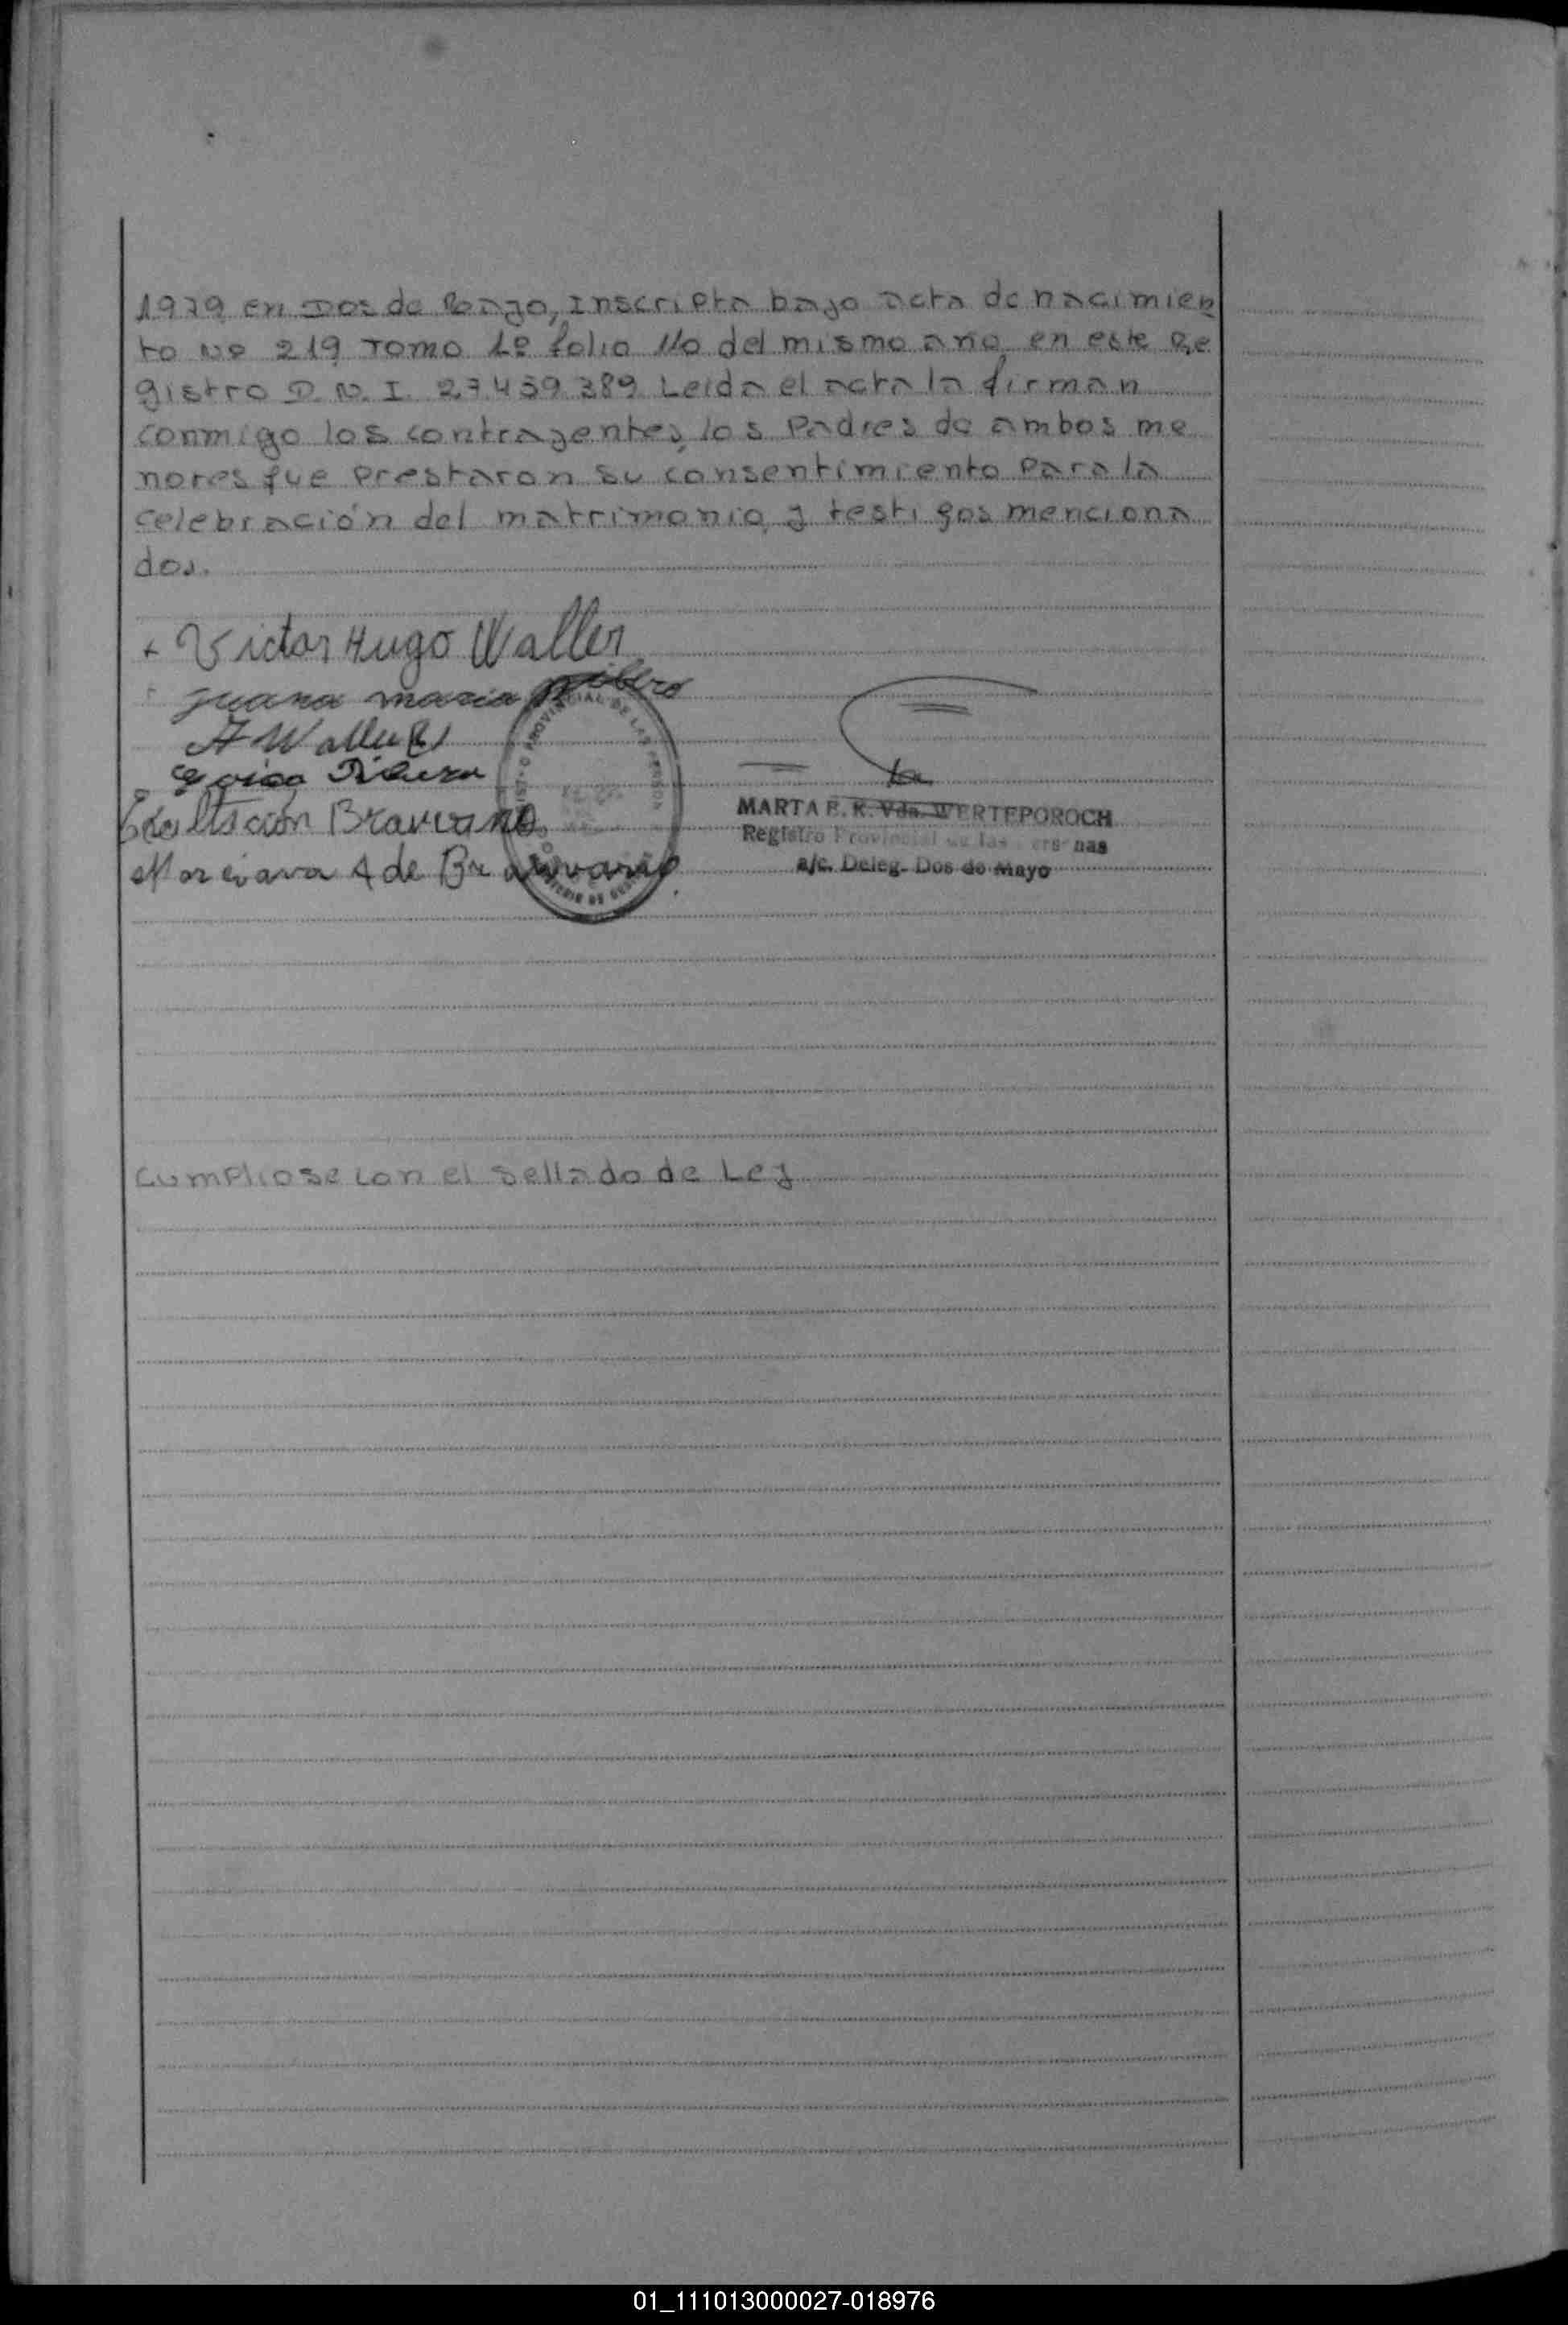 1979 en Dos de Mayo, Inscripta bajo acta de nacimien
to Nº 219 Tomo 1º folio 110 del mismo año en este Re
gistro D.N.I. 27.459.389 Leida el acta la firman
conmigo los contrayentes, los Padres de ambos me
nores que prestaron su consentimiento para la
celebración del matrimonio y testigos menciona
dos.
+ Victor Hugo Waller
juana maria
A Waller
Braviano
A de Br
MARTA E. K. Vda. WERTEPOROCH
Registro Provincial de las Personas
a/c. Deleg. Dos de Mayo
Cumpliose con el sellado de Ley
01_111013000027-018976